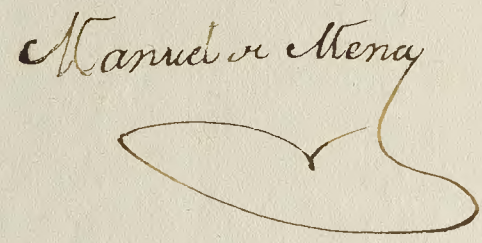 Manuel de Mena